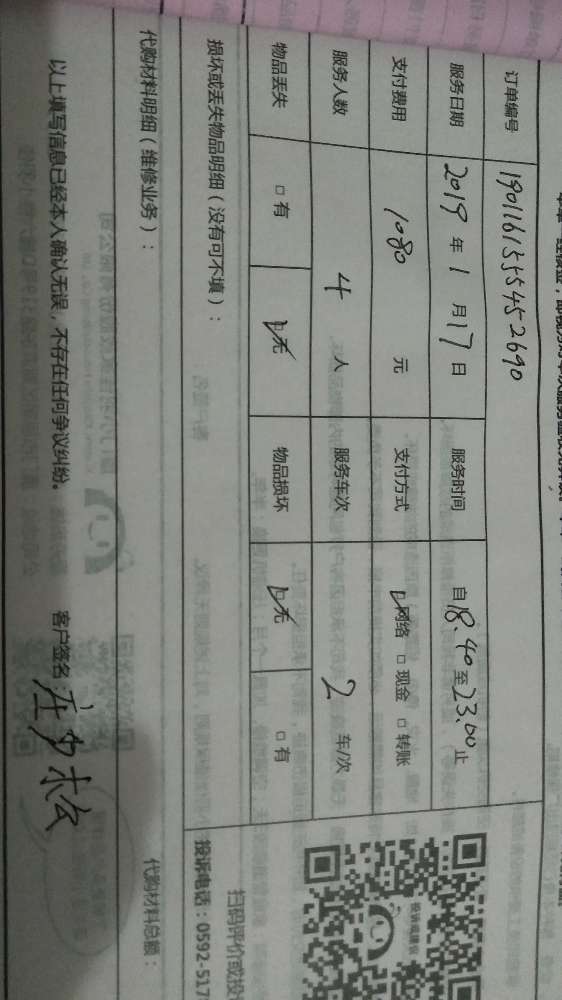 订单编号 190116155545 2690
服务日期 2019 年 1 月 17 日 服务时间 自 18.40 至 23.00 止
支付费用 1080 元 支付方式 ☑网络 □现金 □转账
服务人数 4 人 服务车次 2 车/次
物品丢失 □有 ☑无 物品损坏 ☑无 □有
损坏或丢失物品明细（没有可不填）：
扫码评价或投
投诉电话：0592-517
代购材料明细（维修业务）： 代购材料总额：
以上填写信息已经本人确认无误，不存在任何争议纠纷。 客户签名：